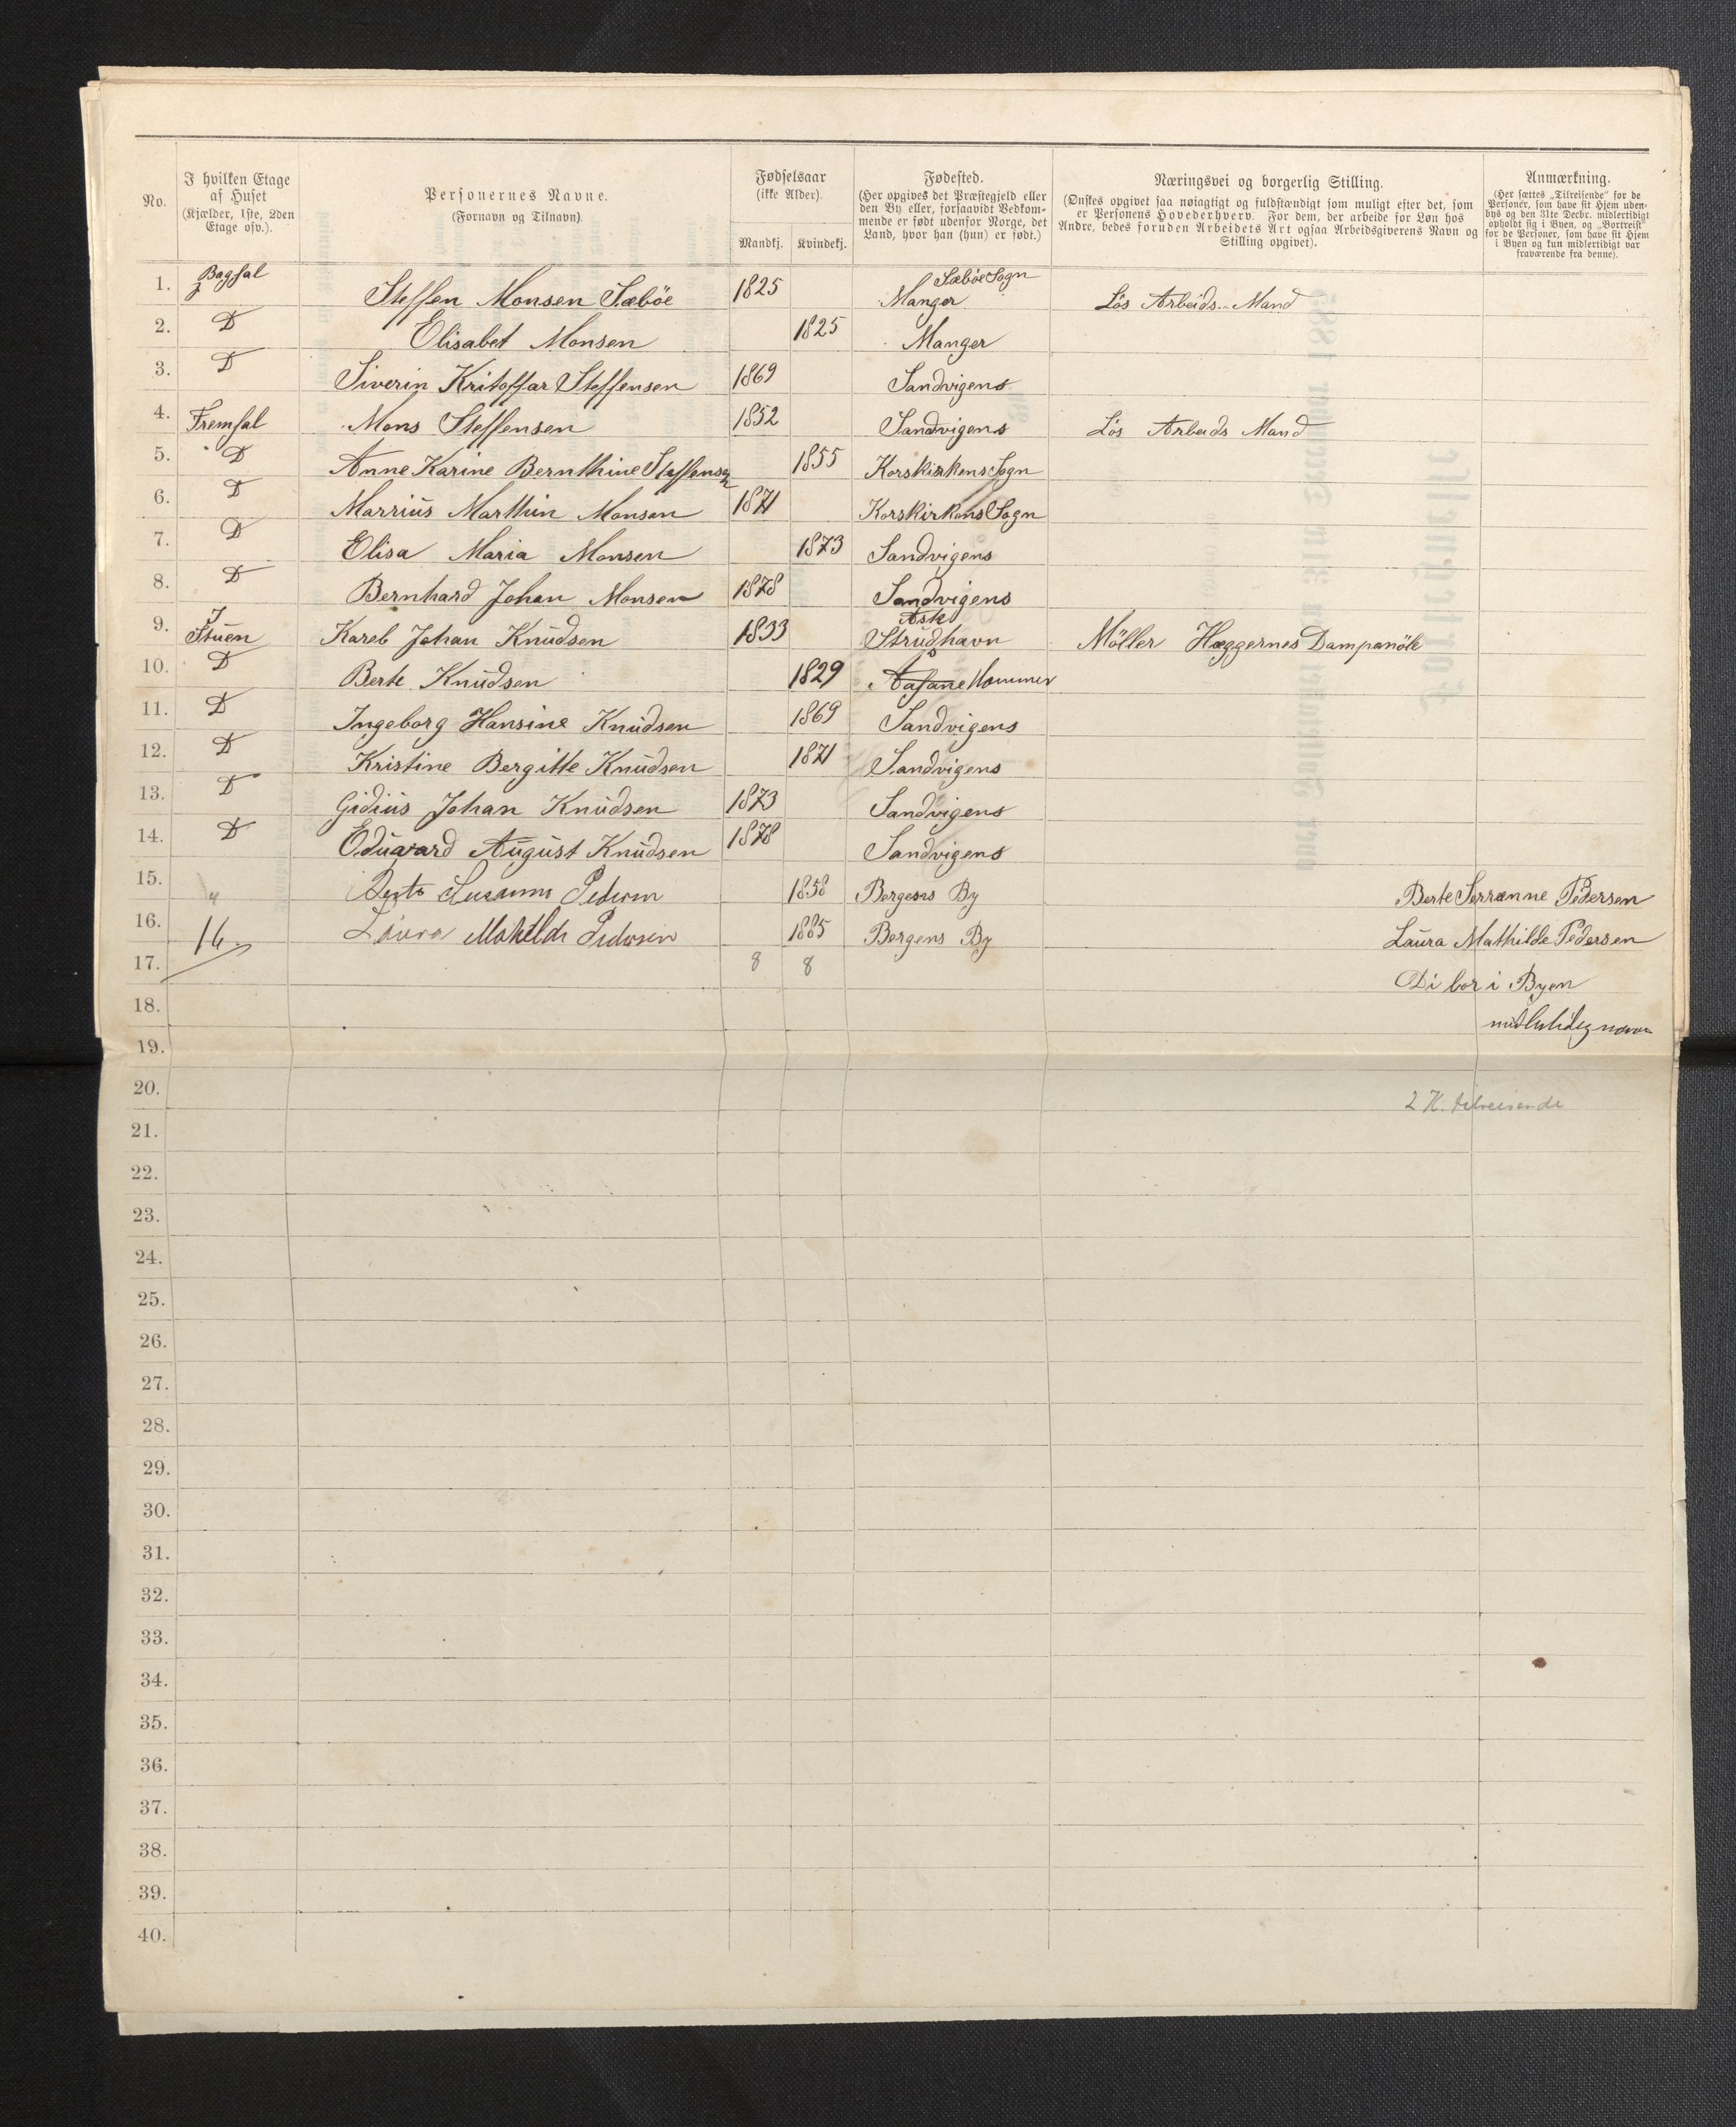 No.
I hvilken Etage af Huset (Kjælder, 1ste, 2den Etage osv.).
Personernes Navne. (Fornavn og Tilnavn).
Fødselsaar (ikke Alder).
Mandkj. Kvindekj.
Fødested. (Her opgives det Præstegjeld eller den By eller, forsaavidt Vedkommende er født udenfor Norge, det Land, hvor han (hun) er født.)
Næringsvei og borgerlig Stilling. (Ønskes opgivet saa nøiagtigt og fuldstændigt som muligt efter det, som er Personens Hovederhverv. For dem, der arbeide for Løn hos Andre, bedes foruden Arbeidets Art ogsaa Arbeidsgiverens Navn og Stilling opgivet).
Anmærkning. (Her sættes „Tilreisende" for de Personer, som have sit Hjem udenbys og den 31te Decbr. midlertidigt opholdt sig i Byen, og „Bortreist" for de Personer, som have sit Hjem i Byen og kun midlertidigt var fraværende fra denne).
1. Bagsal Steffen Monsen Sæböe 1825 Manger Sæböe Sogn Lös Arbeids Mand
2. D Elisabet Monsen 1825 Manger
3. D Siverin Kritoffar Steffensen 1869 Sandvigens
4. Fremsal Mons Steffensen 1852 Sandvigens Lös Arbeids Mand
5. D Anne Karine Bernthine Steffensen 1855 Korskirkens Sogn
6. D Marrius Marthin Monsen 1871 Korskirkens Sogn
7. D Elisa Maria Monsen 1873 Sandvigens
8. D Bernhard Johan Monsen 1878 Sandvigens
9. I Stuen Karel Johan Knudsen 1833 Ask Strudshavn Möller Hæggernes Dampmöle
10. D Berte Knudsen 1829 Aasane Hammer
11. D Ingeborg Hansine Knudsen 1869 Sandvigens
12. D Kristine Bergitte Knudsen 1871 Sandvigens
13. D Gidius Johan Knudsen 1873 Sandvigens
14. D Eduavard August Knudsen 1878 Sandvigens
15. " Berte Susanne Pedersen 1858 Bergens By Berte Serranne Pedersen
16. 16. Laura Mathilde Pedersen 1885 Bergens By Laura Mathilde Pedersen
17. 8 8 Di bor i Byen
18.
19.
20. 2 K. tilreisende
21.
22.
23.
24.
25.
26.
27.
28.
29.
30.
31.
32.
33.
34.
35.
36.
37.
38.
39.
40.